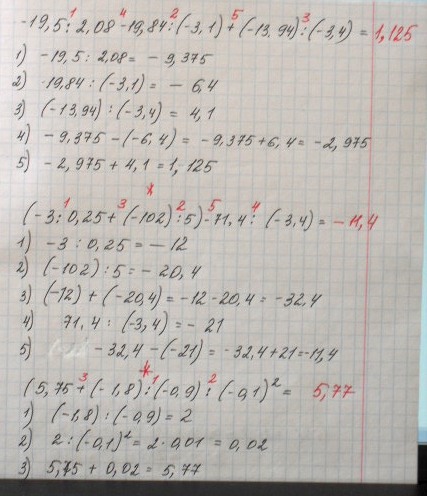 -19,5 : 2,08 - 19,84 : (-3,1) + (-13,94) : (-3,4) = 1,125
1 4 2 5 3
1) -19,5 : 2,08 = - 9,375
2) -19,84 : (-3,1) = - 6,4
3) (-13,94) : (-3,4) = 4,1
4) - 9,375 - (-6,4) = -9,375 + 6,4 = - 2,975
5) - 2,975 + 4,1 = 1,125
*
(-3 : 0,25 + (-102) : 5) - 71,4 : (-3,4) = - 11,4
1 3 2 5 4
1) -3 : 0,25 = - 12
2) (-102) : 5 = - 20,4
3) (-12) + (-20,4) = -12 - 20,4 = -32,4
4) 71,4 : (-3,4) = - 21
5) - 32,4 - (-21) = - 32,4 + 21 = -11,4
*
(5,75 + (-1,8) : (-0,9) : (-0,1)² = 5,77
3 1 2
1) (-1,8) : (-0,9) = 2
2) 2 : (-0,1)² = 2 · 0,01 = 0,02
3) 5,75 + 0,02 = 5,77